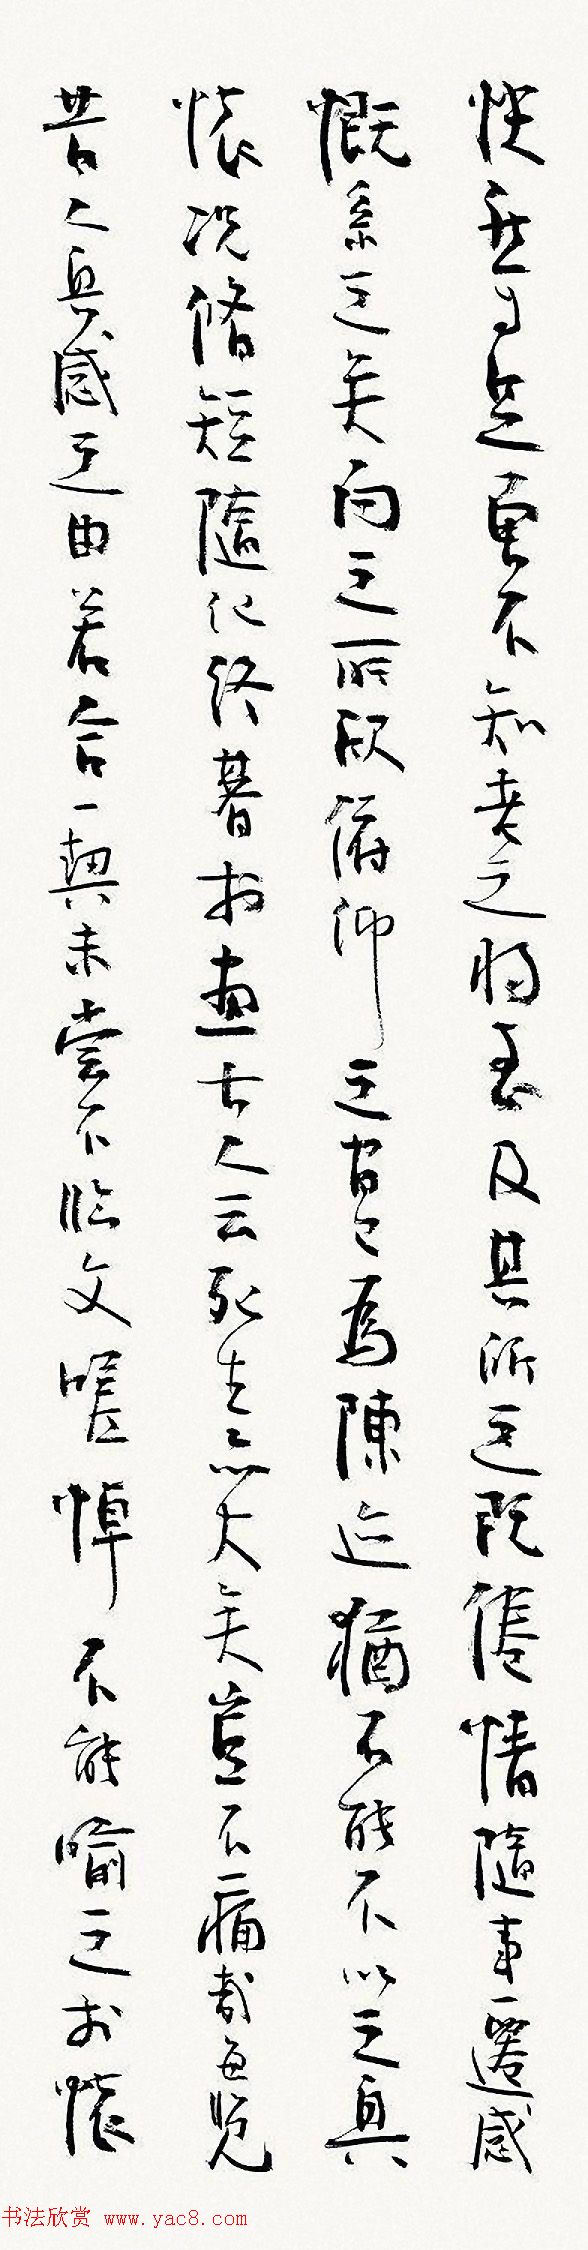 快然自足曾不知老之将至及其所之既倦情隨事遷感
慨系之矣向之所欣俯仰之間已為陳迹猶不能不以之興
懷況脩短隨化終期於盡古人云死生亦大矣豈不痛哉每覽
昔人興感之由若合一契未嘗不臨文嗟悼不能喻之於懷
书法欣赏 www.yac8.com